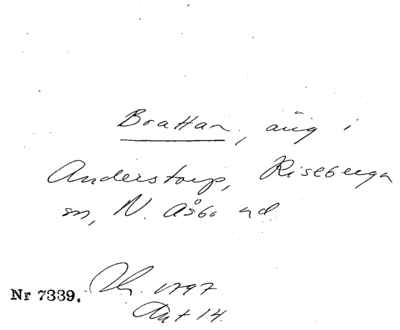 Brattan, äng i
Anderstorp, Riseberga
sn, N. Åsbo hd
Nr 7339. 1797
Akt 14.